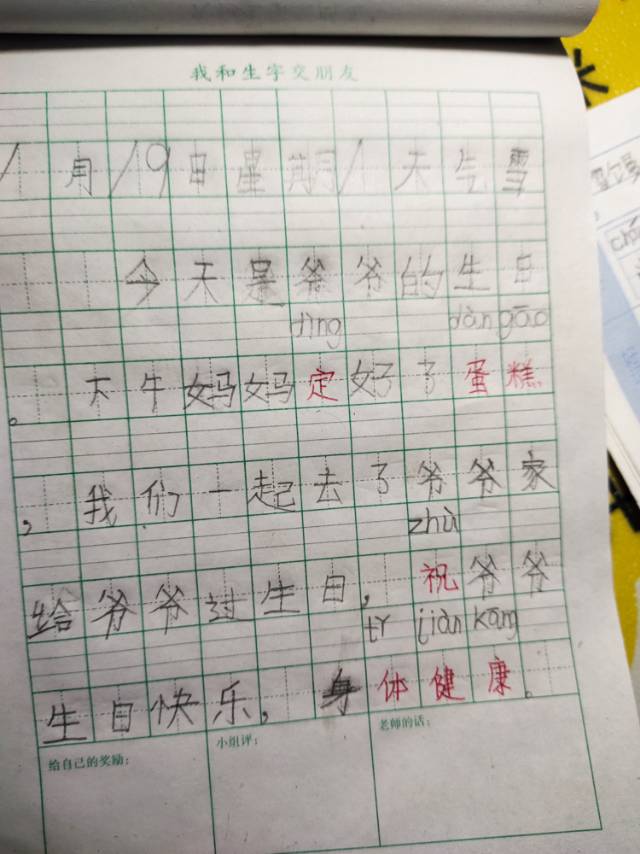 我和生字交朋友
1月19日星期1天气雪
今天是爷爷的生日
dìng dàn gāo
。下午妈妈定好了蛋糕
，我们一起去了爷爷家
zhù
给爷爷过生日，祝爷爷
tǐ jiàn kāng
生日快乐，身体健康。
给自己的奖励：
小组评：
老师的话：